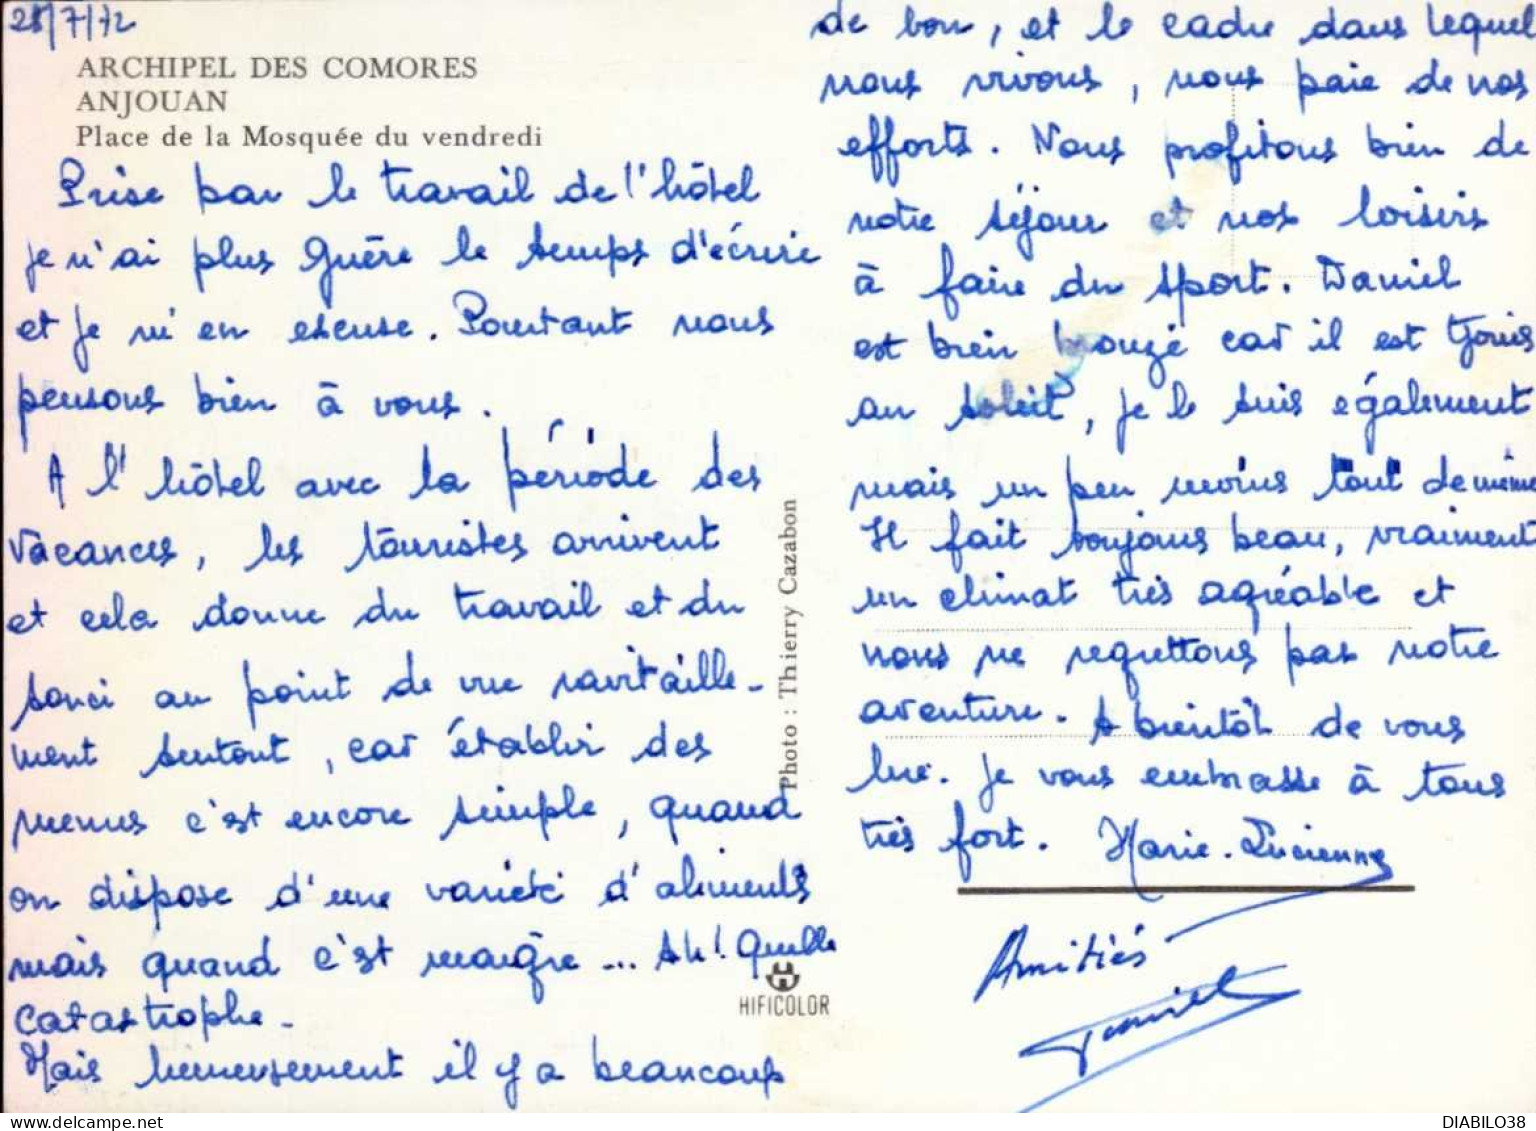 28/7/72
ARCHIPEL DES COMORES
ANJOUAN
Place de la Mosquée du vendredi
Prise par le travail de l'hôtel
je n'ai plus guère le temps d'écrire
et je m'en excuse. Pourtant nous
pensons bien à vous.
A l'hôtel avec la période des
vacances, les touristes arrivent
et cela donne du travail et du
souci au point de vue ravitaille-
ment surtout, car établir des
menus c'est encore simple, quand
on dispose d'une variété d'aliments
mais quand c'est maigre... Ah! Quelle
catastrophe.
Mais heureusement il y a beaucoup
de bon, et le cadre dans lequel
nous vivons, nous paie de nos
efforts. Nous profitons bien de
notre séjour et nos loisirs
à faire du sport. Daniel
est bien bronzé car il est tjours
au soleil, je le suis également
mais un peu moins tout de même
Il fait toujours beau, vraiment
un climat très agréable et
nous ne regrettons pas notre
aventure. A bientôt de vous
lire. Je vous embrasse à tous
très fort. Marie-Lucienne
Amitiés
Daniel
Photo : Thierry Cazabon
HIFICOLOR
DIABILO38